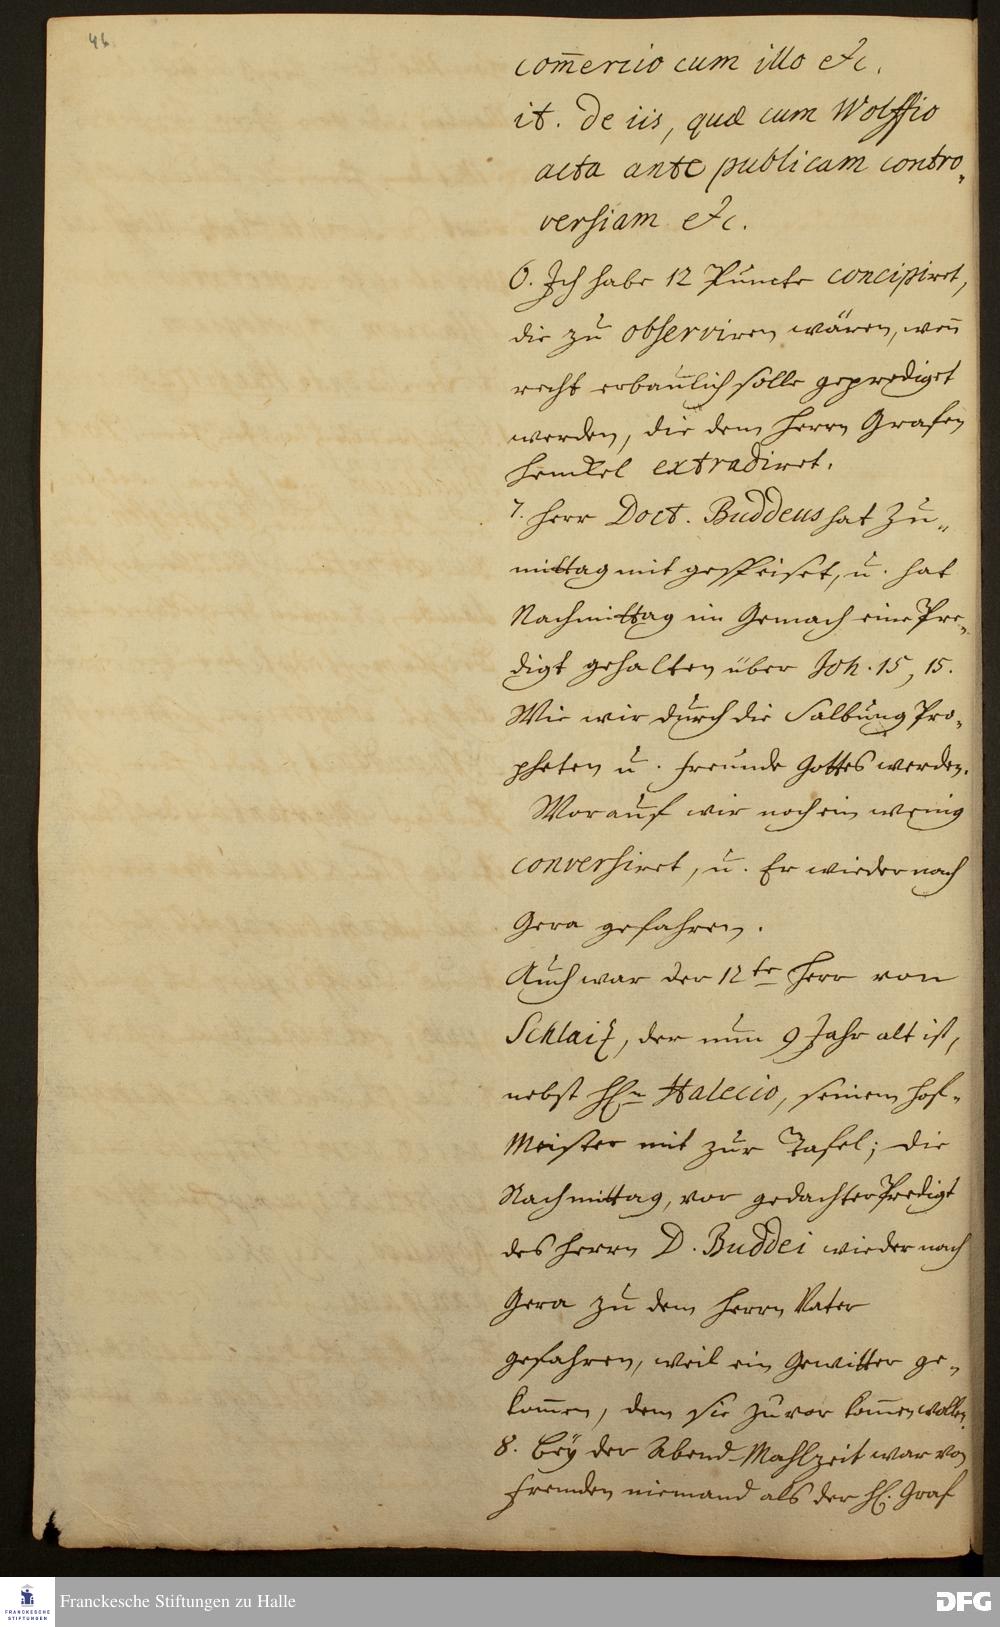 46
com̄ercio cum illo etc.
it. de iis, quæ cum Wolffio
acta ante publicam contro„
versiam etc.
6. Ich habe 12 Puncte concipiret,
die zu observiren wären, weñ
recht erbaulich solle geprediget
werden, die dem Herrn Grafen
Henckel extradiret.
7. Herr Doct. Buddeus hat Zu„
mittag mit gespeiset, u. hat
Nachmittag im Gemach eine Pre„
digt gehalten über Joh. 15, 15.
Wie wir durch die Salbung Pro„
pheten u. Freunde Gottes werden.
Worauf wir noch ein wenig
conversiret, u. Er wieder nach
Gera gefahren.
Auch war der 12te Herr von
Schlaiz, der nun 9 Jahr alt ist,
nebst HEn Halecio, seinem Hof„
Meister mit zur Tafel; die
Nachmittag, vor gedachter Predigt
des Herrn D. Buddei wieder nach
Gera zu dem Herrn Vater
gefahren, weil ein Gewitter ge„
kom̄en, dem sie zuvor kom̄en wollen.
8. Bey der Abend-Mahlzeit war von
Fremden niemand als der H. Graf
Franckesche Stiftungen zu Halle
FRANCKESCHE
STIFTUNGEN
DFG